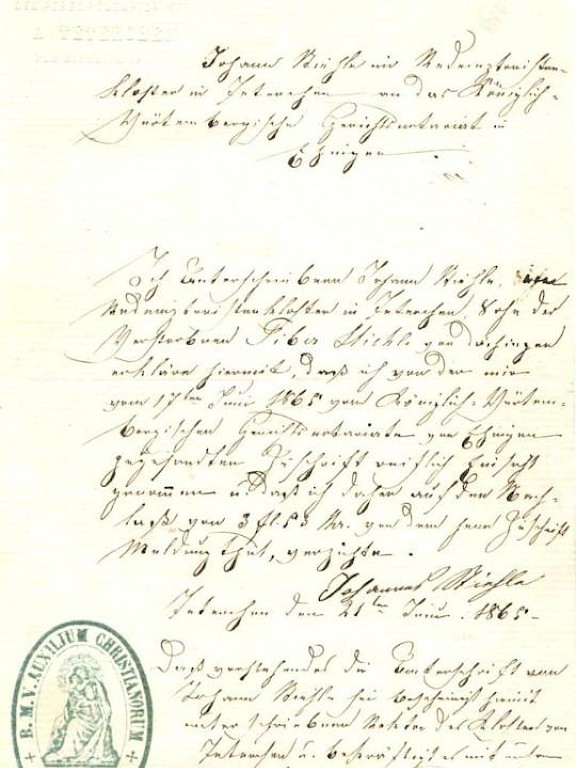 Johann Stiehle im Redemptoristen-
kloster in Teterchen an das Königlich-
Würtembergische Gerichtsnotariat in
Ehingen
Ich Unterschriebener Johann Stiehle, im
Redemptoristenkloster in Teterchen, Sohn des
Verstorbenen Tiber Stiehle von Dächingen
erkläre hiermit, daß ich von der mir
vom 17ten Juni 1865 vom Königlich-Würtem-
bergischen Gerichtsnotariate von Ehingen
zugesandten Zuschrift reiflich Einsicht
genommen u. daß ich daher auf den Nach-
laß von 3 fl. 53 Kr. von dem jene Zuschrift
Meldung thut, verzichte.
Johannes Stiehle
Teterchen den 21ten Juni. 1865.
Daß vorstehendes die Unterschrift von
Johann Stiehle sei bescheinigt hiermit
unterschriebener Rektor des Klosters von
Teterchen u. bekräftigt es mit
+ B. M. V. AUXILIUM CHRISTIANORUM +